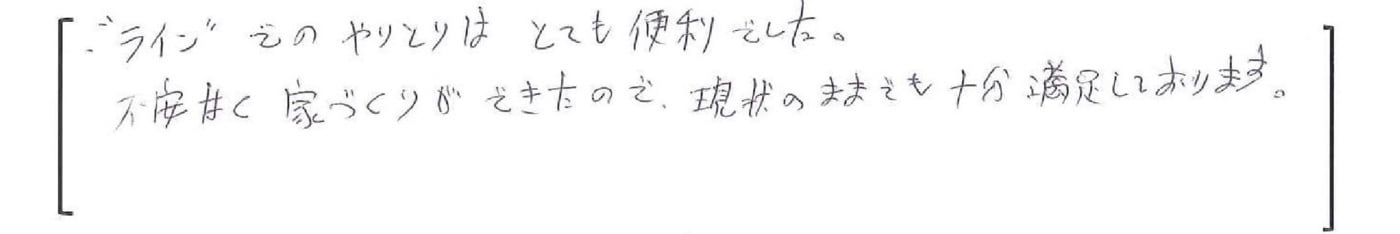 "ライン" でのやりとりは とても便利でした。
不安なく 家づくりが できたので、現状のままでも 十分満足しております。